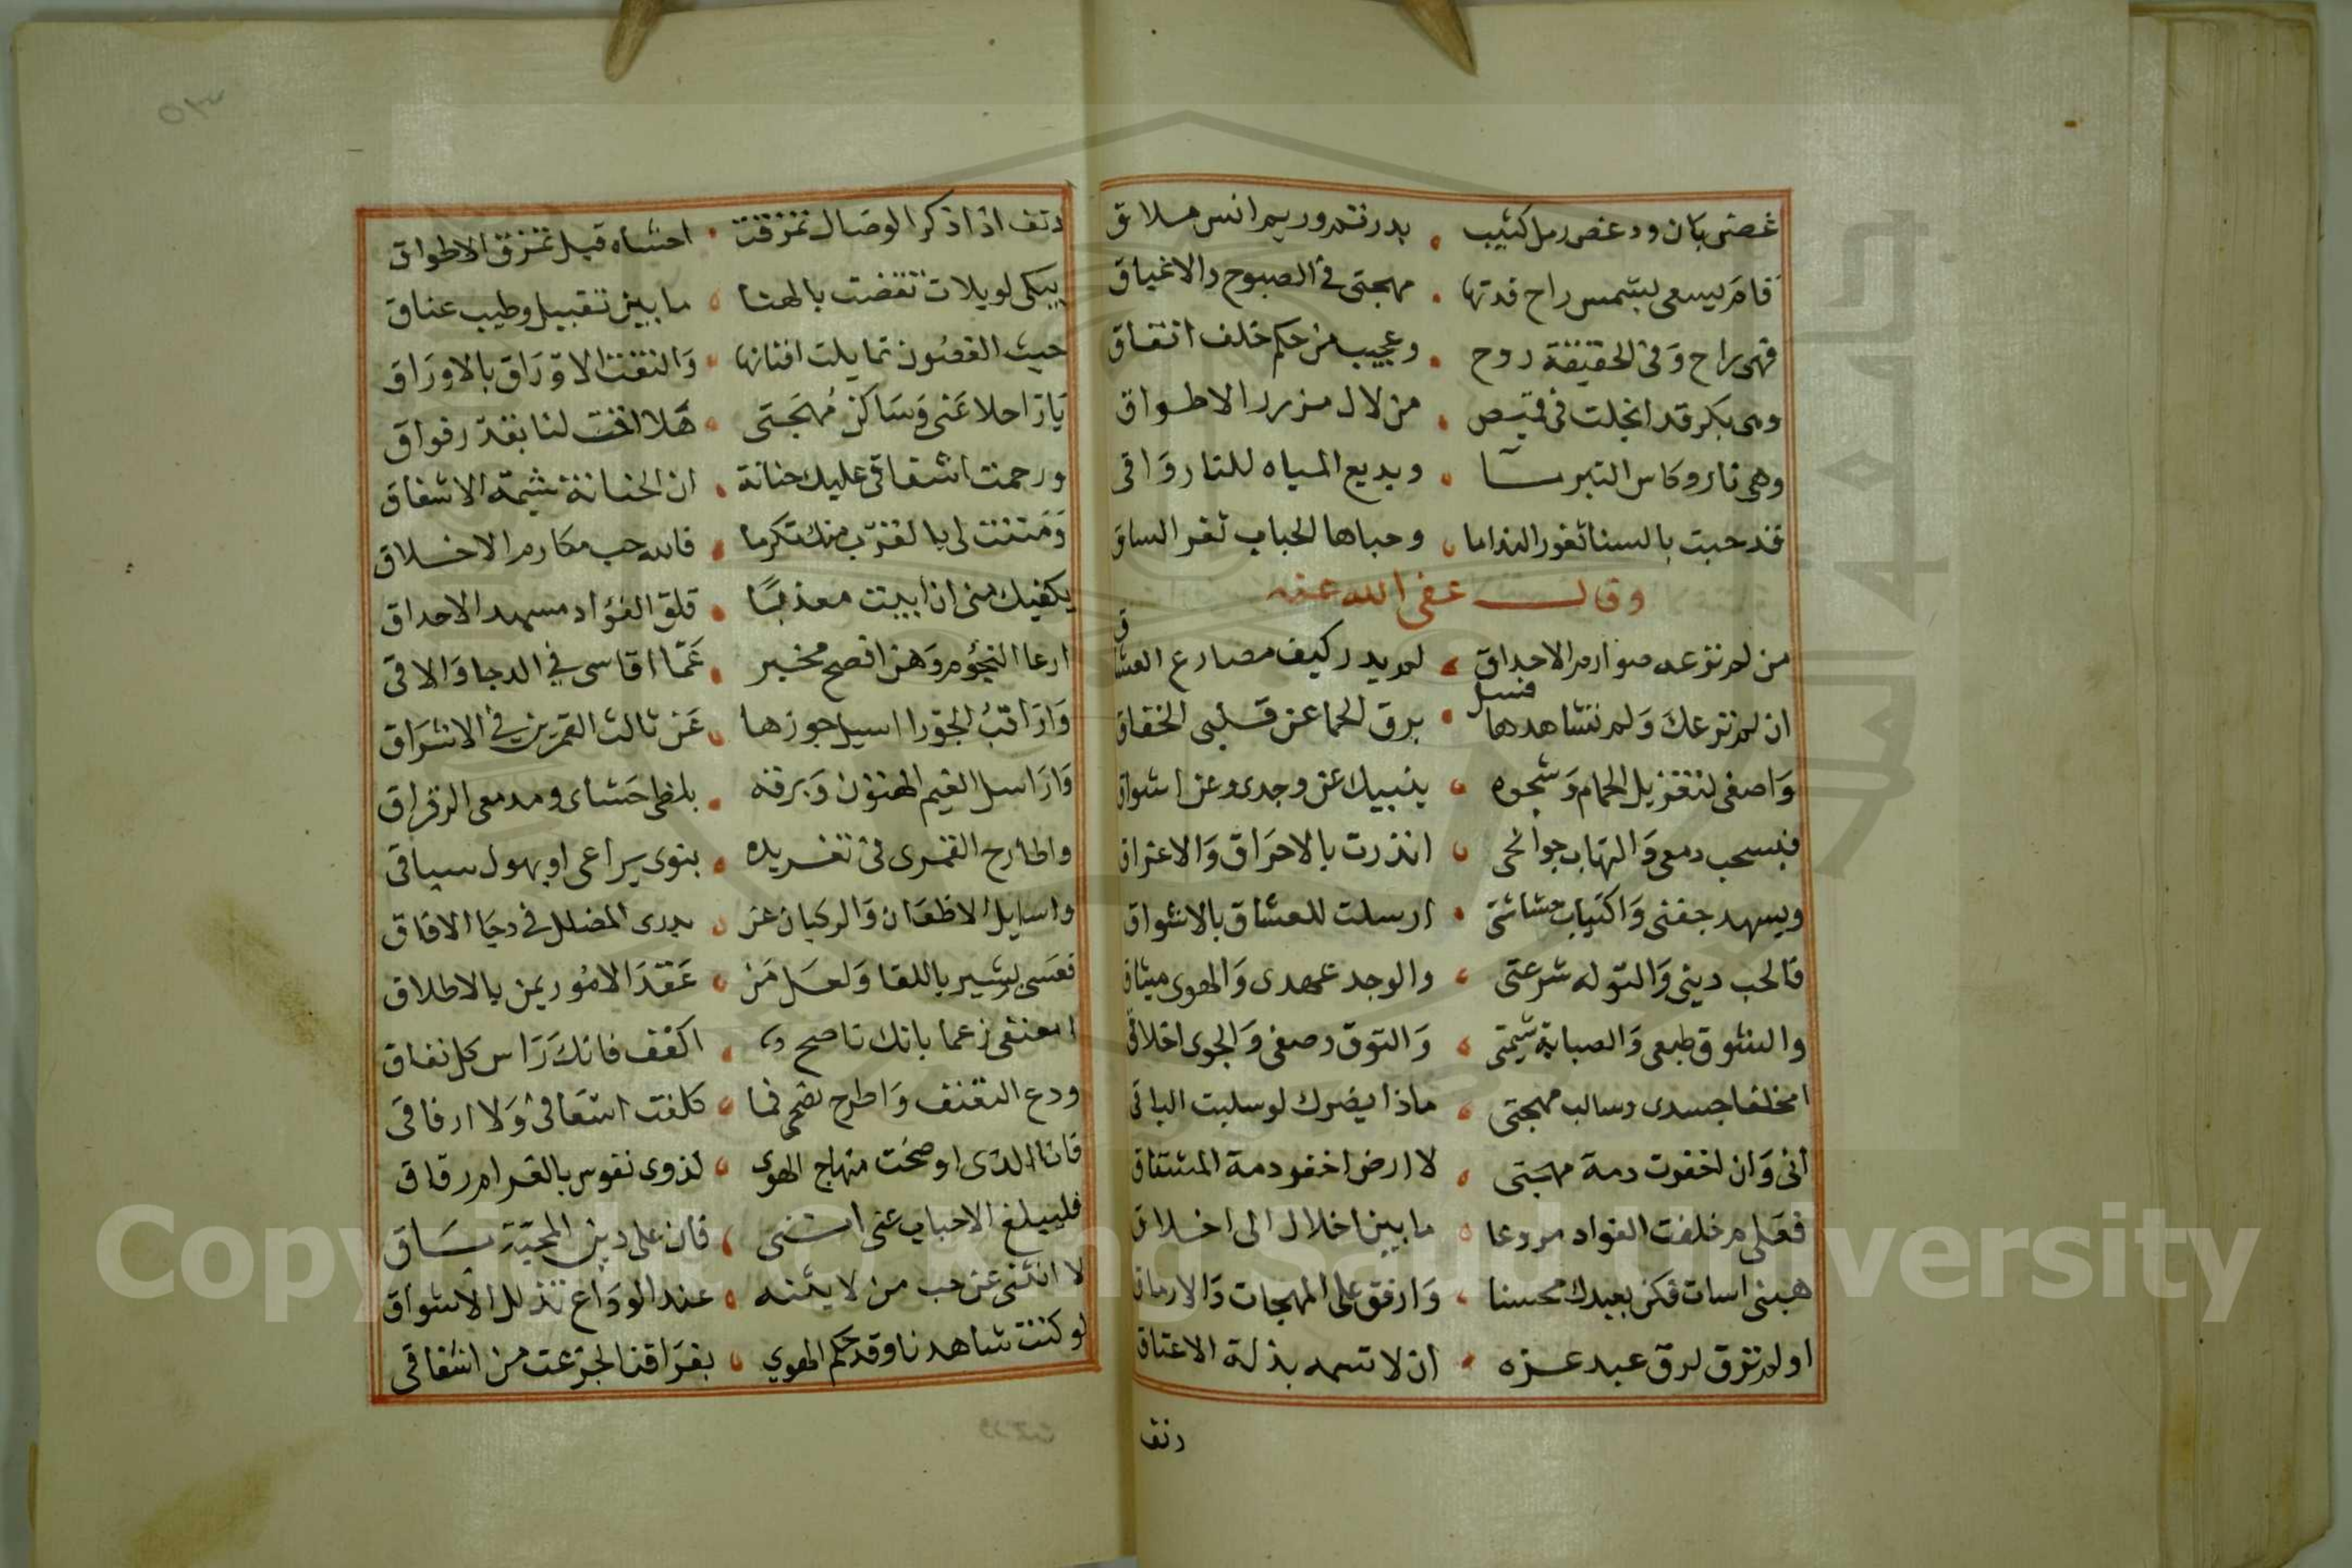 غصن بان ودعص رمل كثيب • بدر تم وريم انس ملاق
قام يسعى بشمس راح فدتها • مهجتي في الصبوح والاغباق
فهي راح وفي الحقيقة روح • وعجيب من حكم خلف اتفاق
وهي بكر قد انجلت في قميص • من لال مزرر الاطواق
وهي نار وكاس التبر • وبديع المياه للنار واقى
قد حبت بالسنا ثغور النداما • وحباها الحباب ثغر الساق
وقال عفى الله عنه
من لم ترعه صوارم الاحداق • لم يدر كيف مصارع العشاق
ان لم ترعك ولم تشاهدها فسل • برق الحما عن قلبى الخفاق
واصغى لتغزيل الحمام وشجوه • ينبيك عن وجدى وعن اشواق
فبسحب دمعى والتهاب جوانحى • انذرت بالاحراق والاغراق
وبسهد جفنى واكتياب حشاشتى • ارسلت للعشاق بالاشواق
فالحب دينى والتوله شرعتى • والوجد عهدى والهوى ميثاق
والشوق طبعى والصبابة شيمتى • والتوق وصفى والجوى اخلاقى
امخلفا جسدى وسالب مهجتى • ماذا يضرك لو سلبت الباقى
انى وان اخفوت دمة مهجتى • لا ارض اخفو دمة المشتاق
فعلى م خلفت الفواد مروعا • ما بين اخلال الى اخلاق
هبنى اسات فكن بعبدك محسنا • وارفق على المهجات والارماق
او لم ترق لرق عبد عزه • ان لا تسمه بذلة الاعتاق
دنف
دنف اذا ذكر الوصال تمزقت • احشاه قبل تمزق الاطواق
يبكى لويلات تقضت بالهنا • ما بين تقبيل وطيب عناق
حيث الغصون تمايلت افنانها • والتفت الاوراق بالاوراق
يا راحلا عنى وساكن مهجتى • هلا انخت لنا بقدر فواق
ورحمت اشفاقى عليك حنانة • ان الحنانة شيمة الاشفاق
ومننت لى بالقرب منك تكرما • فالله حب مكارم الاخلاق
يكفيك منى ان ابيت معذبا • قلق الفؤاد مسهد الاحداق
ارعا النجوم وهن افصح مخبر • عما اقاسى في الدجا والاقى
واراقب الجوزا اسيل جوزها • عن ثالث القمرين في الاشراق
واراسل الغيم الهتون وبرقه • بلظى حشاى ومدمعى الرقراق
واطارح القمرى فى تغريده • بنوى يراعى او بهول سباقى
واسايل الاظعان والركبان عن • بدرى المضلل في دجا الافاق
فعسى بشير باللقا ولعل من • عقد الامور يمن بالاطلاق
امعنفى زعما بانك ناصح • اكفف فانك راس كل نفاق
ودع التعنف واطرح نصحى فما • كلفت اشفاقى ولا ارفاقى
فانا الذى اوضحت منهاج الهوى • لذوى نفوس بالغرام رقاق
فليبلغ الاحباب عنى اننى • فان على دين المحبة باق
لا انثنى عن حب من لا يثنه • عند الوداع تذلل الاشواق
لو كنت شاهدنا وقد حكم الهوى • بفراقنا لجزعت من اشفاقى
Copyright © King Saud University